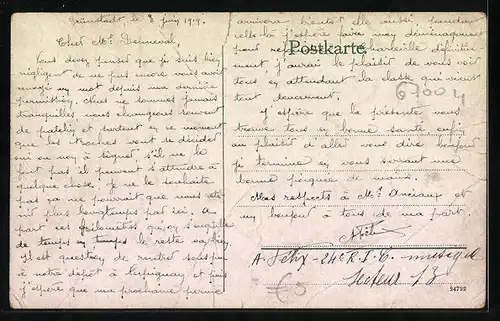 Grünstadt, le 8 Juin 1919.
Cher Mr Denneval
Vous devez penser que je suis bien
négligent de ne pas encore vous avoir
envoyé un mot depuis ma dernière
permission. Nous ne sommes jamais
tranquilles nous changeons souvent
de patelin et surtout en ce moment
que les Boches vont se décider
oui ou non à signer s'il ne le
font pas il peuvent s'attendre à
quelque chose. Je ne le souhaite
pas ça ne pourrait que nous
plus longtemps par ici. A
part ces que
de temps en temps le reste
Il est question de rentrer
à notre dépôt à et puis
j'espère que ma prochaine perme
arrivera bientôt elle aussi, pendant
celle-là j'espère faire mon déménagement
pour Charleville
ment j'aurai le plaisir de vous voir
tous en attendant la classe qui vient
tout doucement.
J'espère que la présente vous
trouve tous en bonne santé
au plaisir d'aller vous dire bonjour
je termine en vous serrant une
bonne poignée de mains.
Mes respects à Mr Anciaux et
un bonjour à tous de ma part.
A. Félix - 24e R.I.C. - musique
Secteur 13
Postkarte.
67004
24722